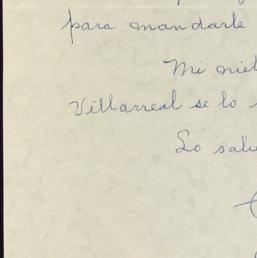 para mandarle
Mi niet
Villarreal se lo
Lo salu